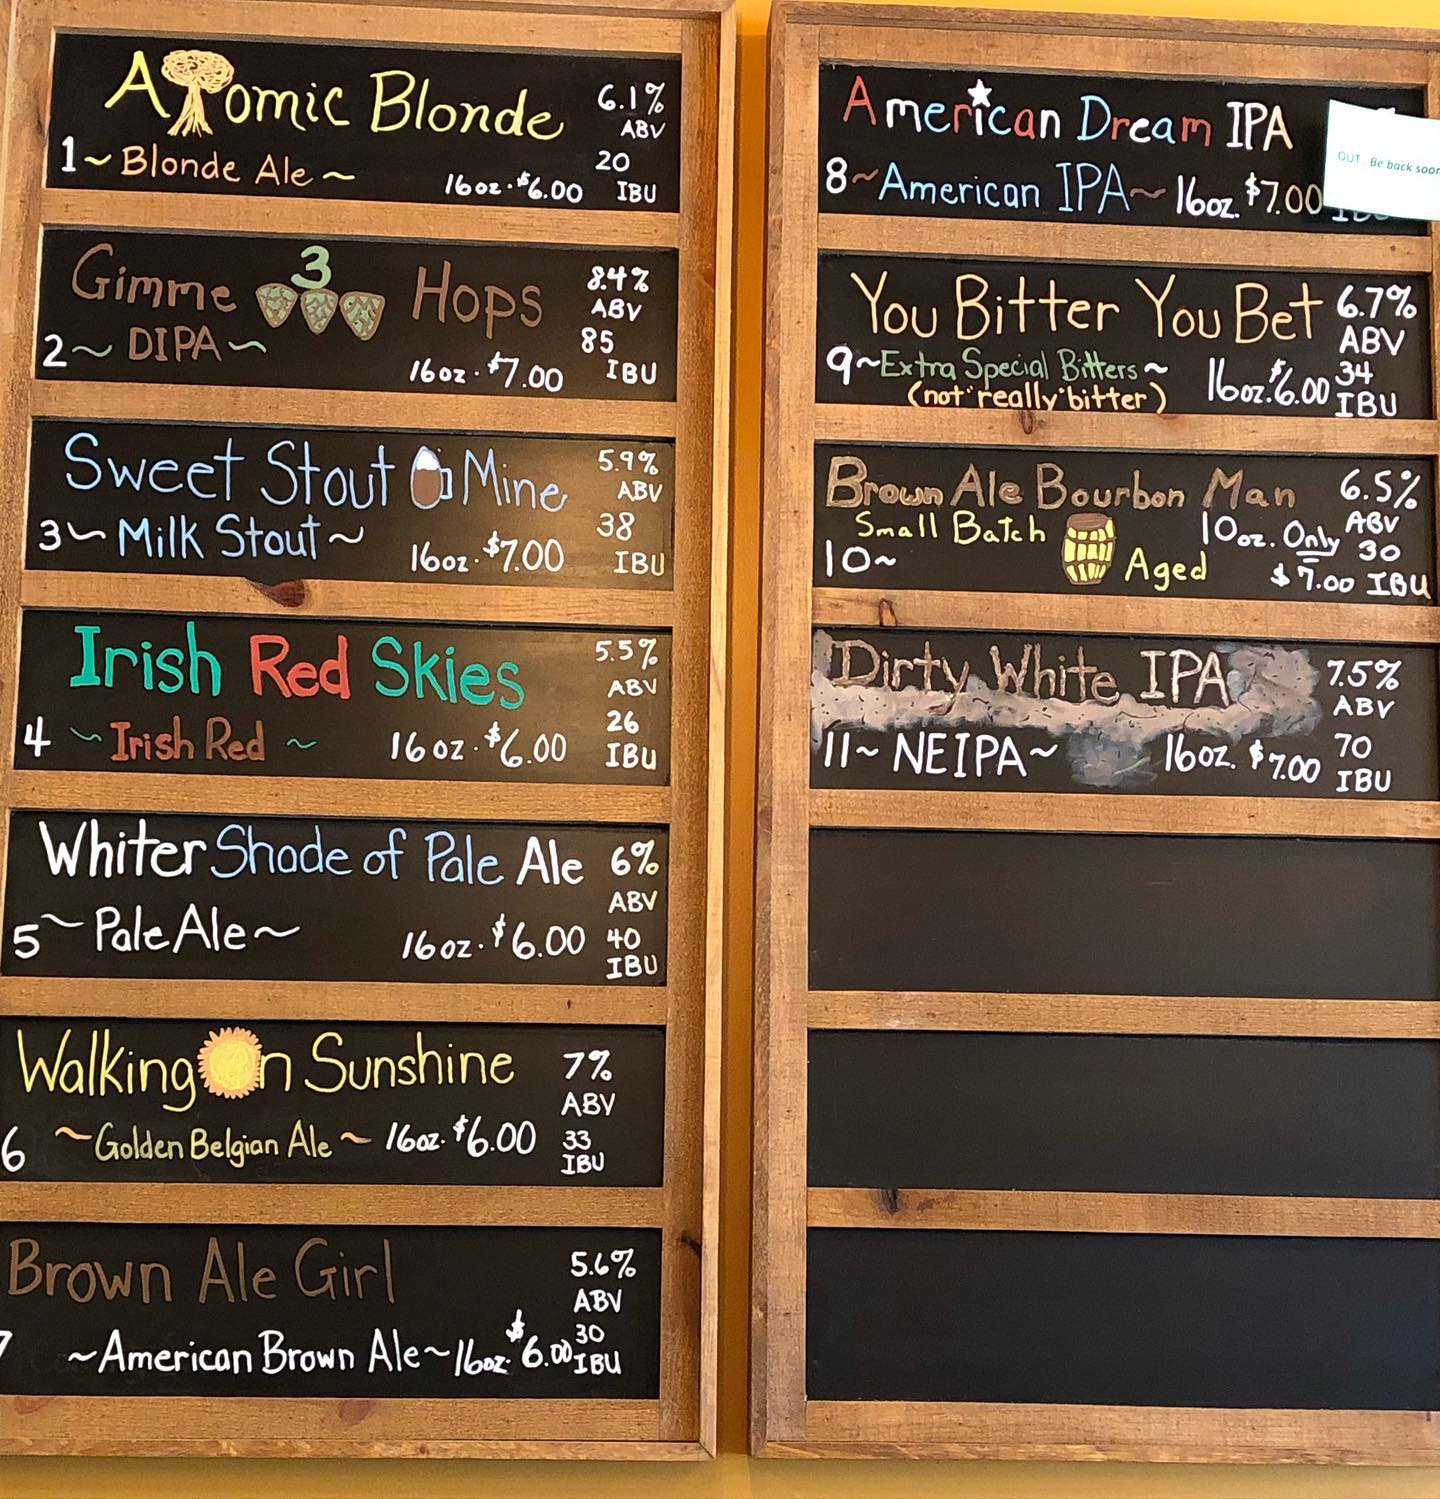 Atomic Blonde 6.1%
ABV
1~Blonde Ale~ 16oz. $6.00 20
IBU
Gimme 3 Hops 8.4%
ABV
2~DIPA~ 16oz. $7.00 85
IBU
Sweet Stout Mine 5.9%
ABV
3~Milk Stout~ 16oz. $7.00 38
IBU
Irish Red Skies 5.5%
ABV
4~Irish Red~ 16oz. $6.00 26
IBU
Whiter Shade of Pale Ale 6%
ABV
5~Pale Ale~ 16oz. $6.00 40
IBU
Walking On Sunshine 7%
ABV
6 ~Golden Belgian Ale~ 16oz. $6.00 33
IBU
Brown Ale Girl 5.6%
ABV
7 ~American Brown Ale~ 16oz. $6.00 30
IBU
American Dream IPA
OUT. Be back soon
8~American IPA~ 16oz. $7.00 IBU
You Bitter You Bet 6.7%
ABV
9~Extra Special Bitters~ 16oz. $6.00 34
(not "really" bitter) IBU
Brown Ale Bourbon Man 6.5%
Small Batch 10oz. Only ABV
10~ Aged 30
$7.00 IBU
Dirty White IPA 7.5%
ABV
11~NEIPA~ 16oz. $7.00 70
IBU